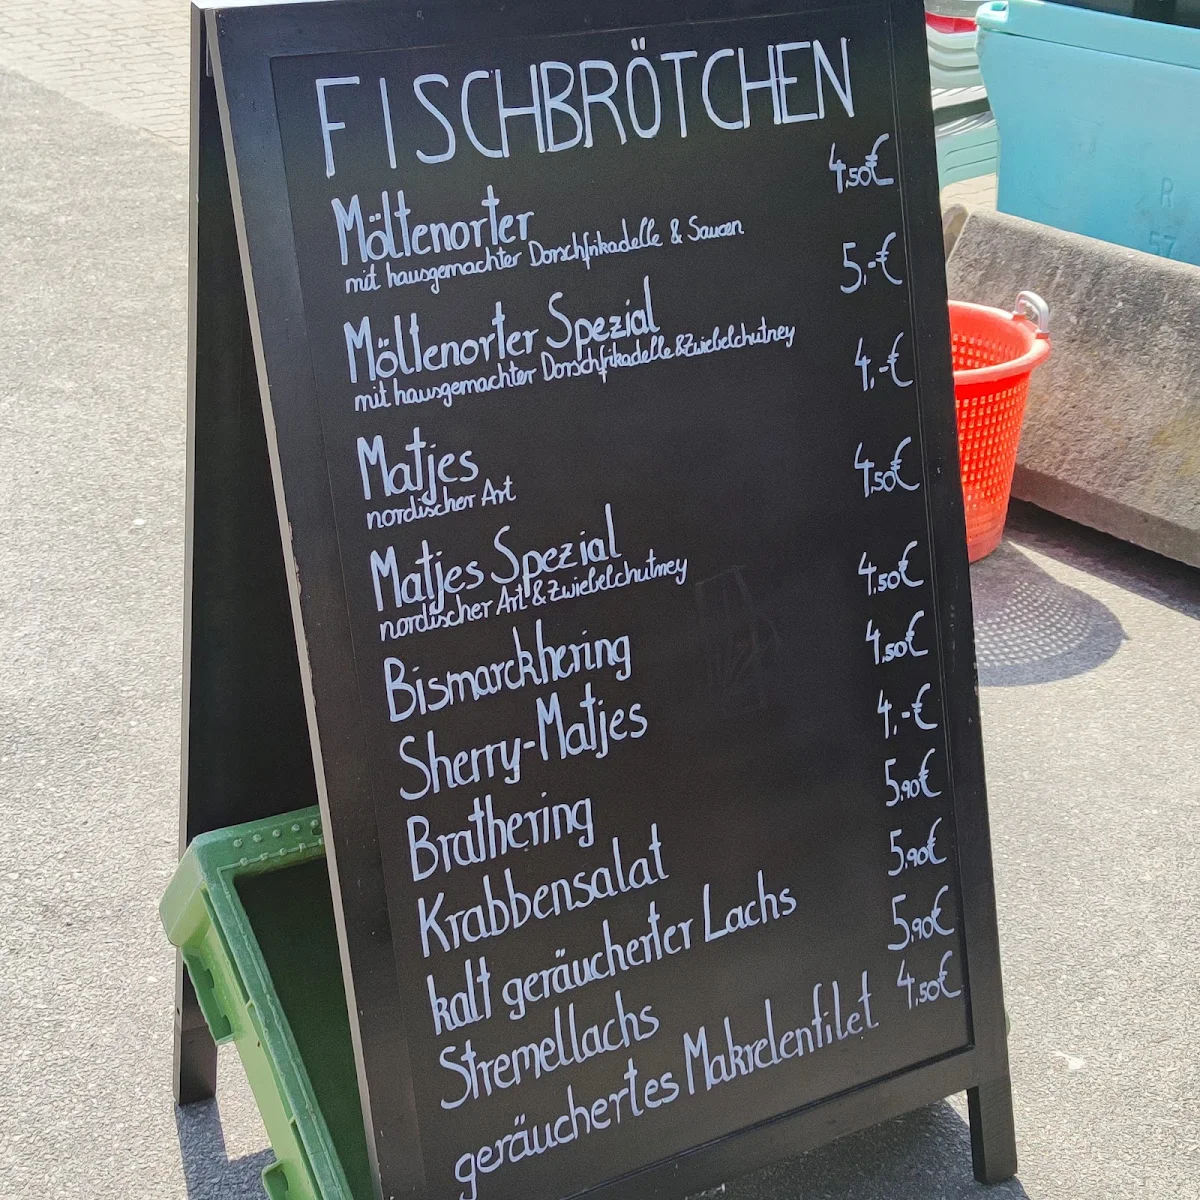 FISCHBRÖTCHEN
Möltenorter 4,50€
mit hausgemachter Dorschfrikadelle & Saucen
Möltenorter Spezial 5,-€
mit hausgemachter Dorschfrikadelle & Zwiebelchutney
Matjes 4,-€
nordischer Art
Matjes Spezial 4,50€
nordischer Art & Zwiebelchutney
Bismarckhering 4,50€
Sherry-Matjes 4,50€
Brathering 4,-€
Krabbensalat 5,90€
kalt geräucherter Lachs 5,90€
Stremellachs 5,90€
geräuchertes Makrelenfilet 4,50€
R